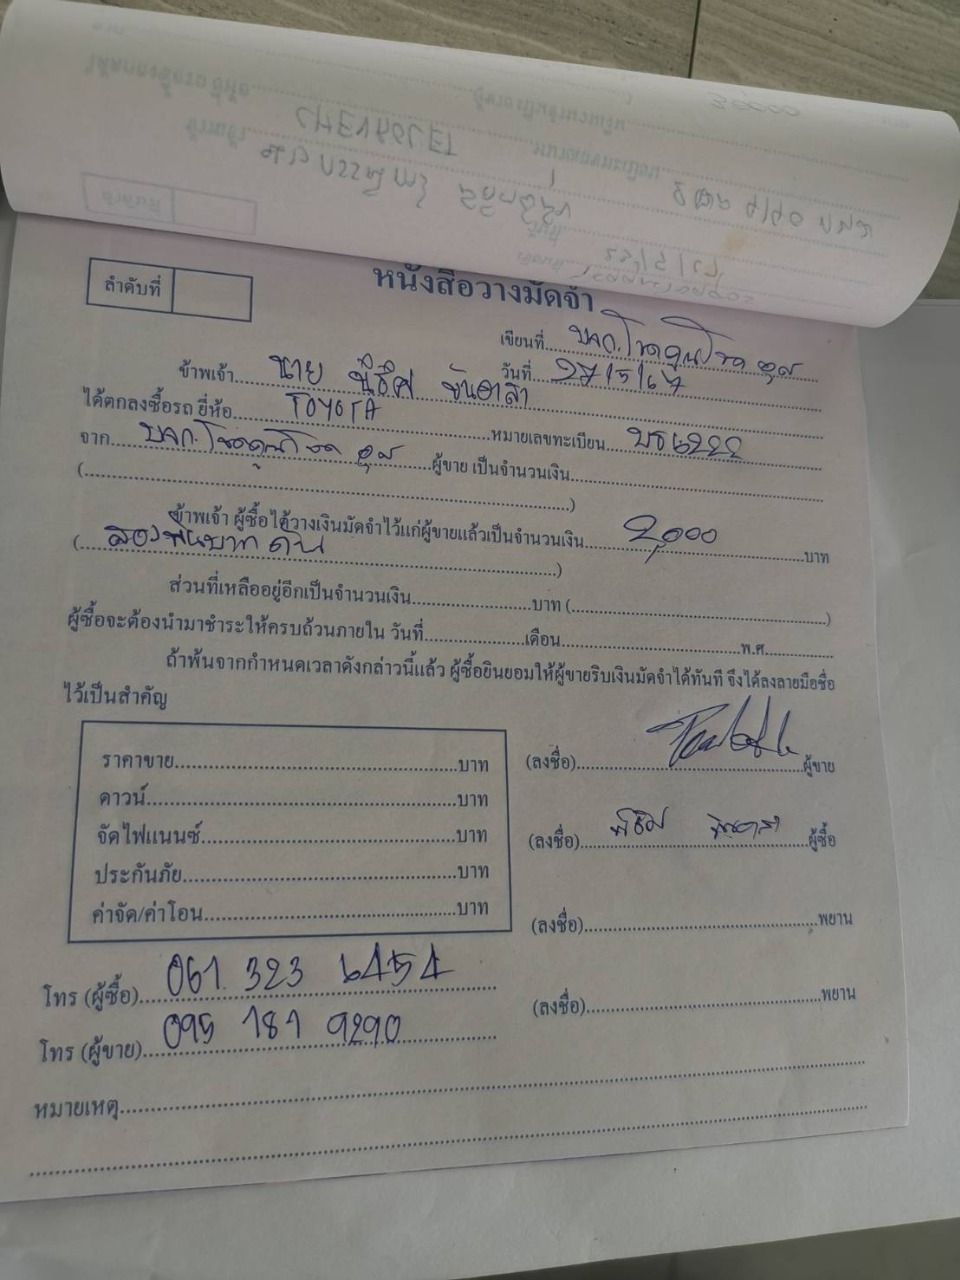 หนังสือวางมัดจำ
ลำดับที่
เขียนที่ บจก.โชคคูณโชค
วันที่ 27/5/67
ข้าพเจ้า นาย
ได้ตกลงซื้อรถ ยี่ห้อ TOYOTA หมายเลขทะเบียน
จาก บจก.โชคคูณโชค ผู้ขาย เป็นจำนวนเงิน
( )
ข้าพเจ้า ผู้ซื้อได้วางเงินมัดจำไว้แก่ผู้ขายแล้วเป็นจำนวนเงิน 2,000 บาท
( สองพันบาทถ้วน )
ส่วนที่เหลืออยู่อีกเป็นจำนวนเงิน บาท ( )
ผู้ซื้อจะต้องนำมาชำระให้ครบถ้วนภายใน วันที่ เดือน พ.ศ.
ถ้าพ้นจากกำหนดเวลาดังกล่าวนี้แล้ว ผู้ซื้อยินยอมให้ผู้ขายริบเงินมัดจำได้ทันที จึงได้ลงลายมือชื่อ
ไว้เป็นสำคัญ
ราคาขาย บาท
ดาวน์ บาท
จัดไฟแนนซ์ บาท
ประกันภัย บาท
ค่าจัด/ค่าโอน บาท
(ลงชื่อ) ผู้ขาย
(ลงชื่อ) ผู้ซื้อ
(ลงชื่อ) พยาน
(ลงชื่อ) พยาน
โทร (ผู้ซื้อ) 061 323 6454
โทร (ผู้ขาย) 095 181 9290
หมายเหตุ